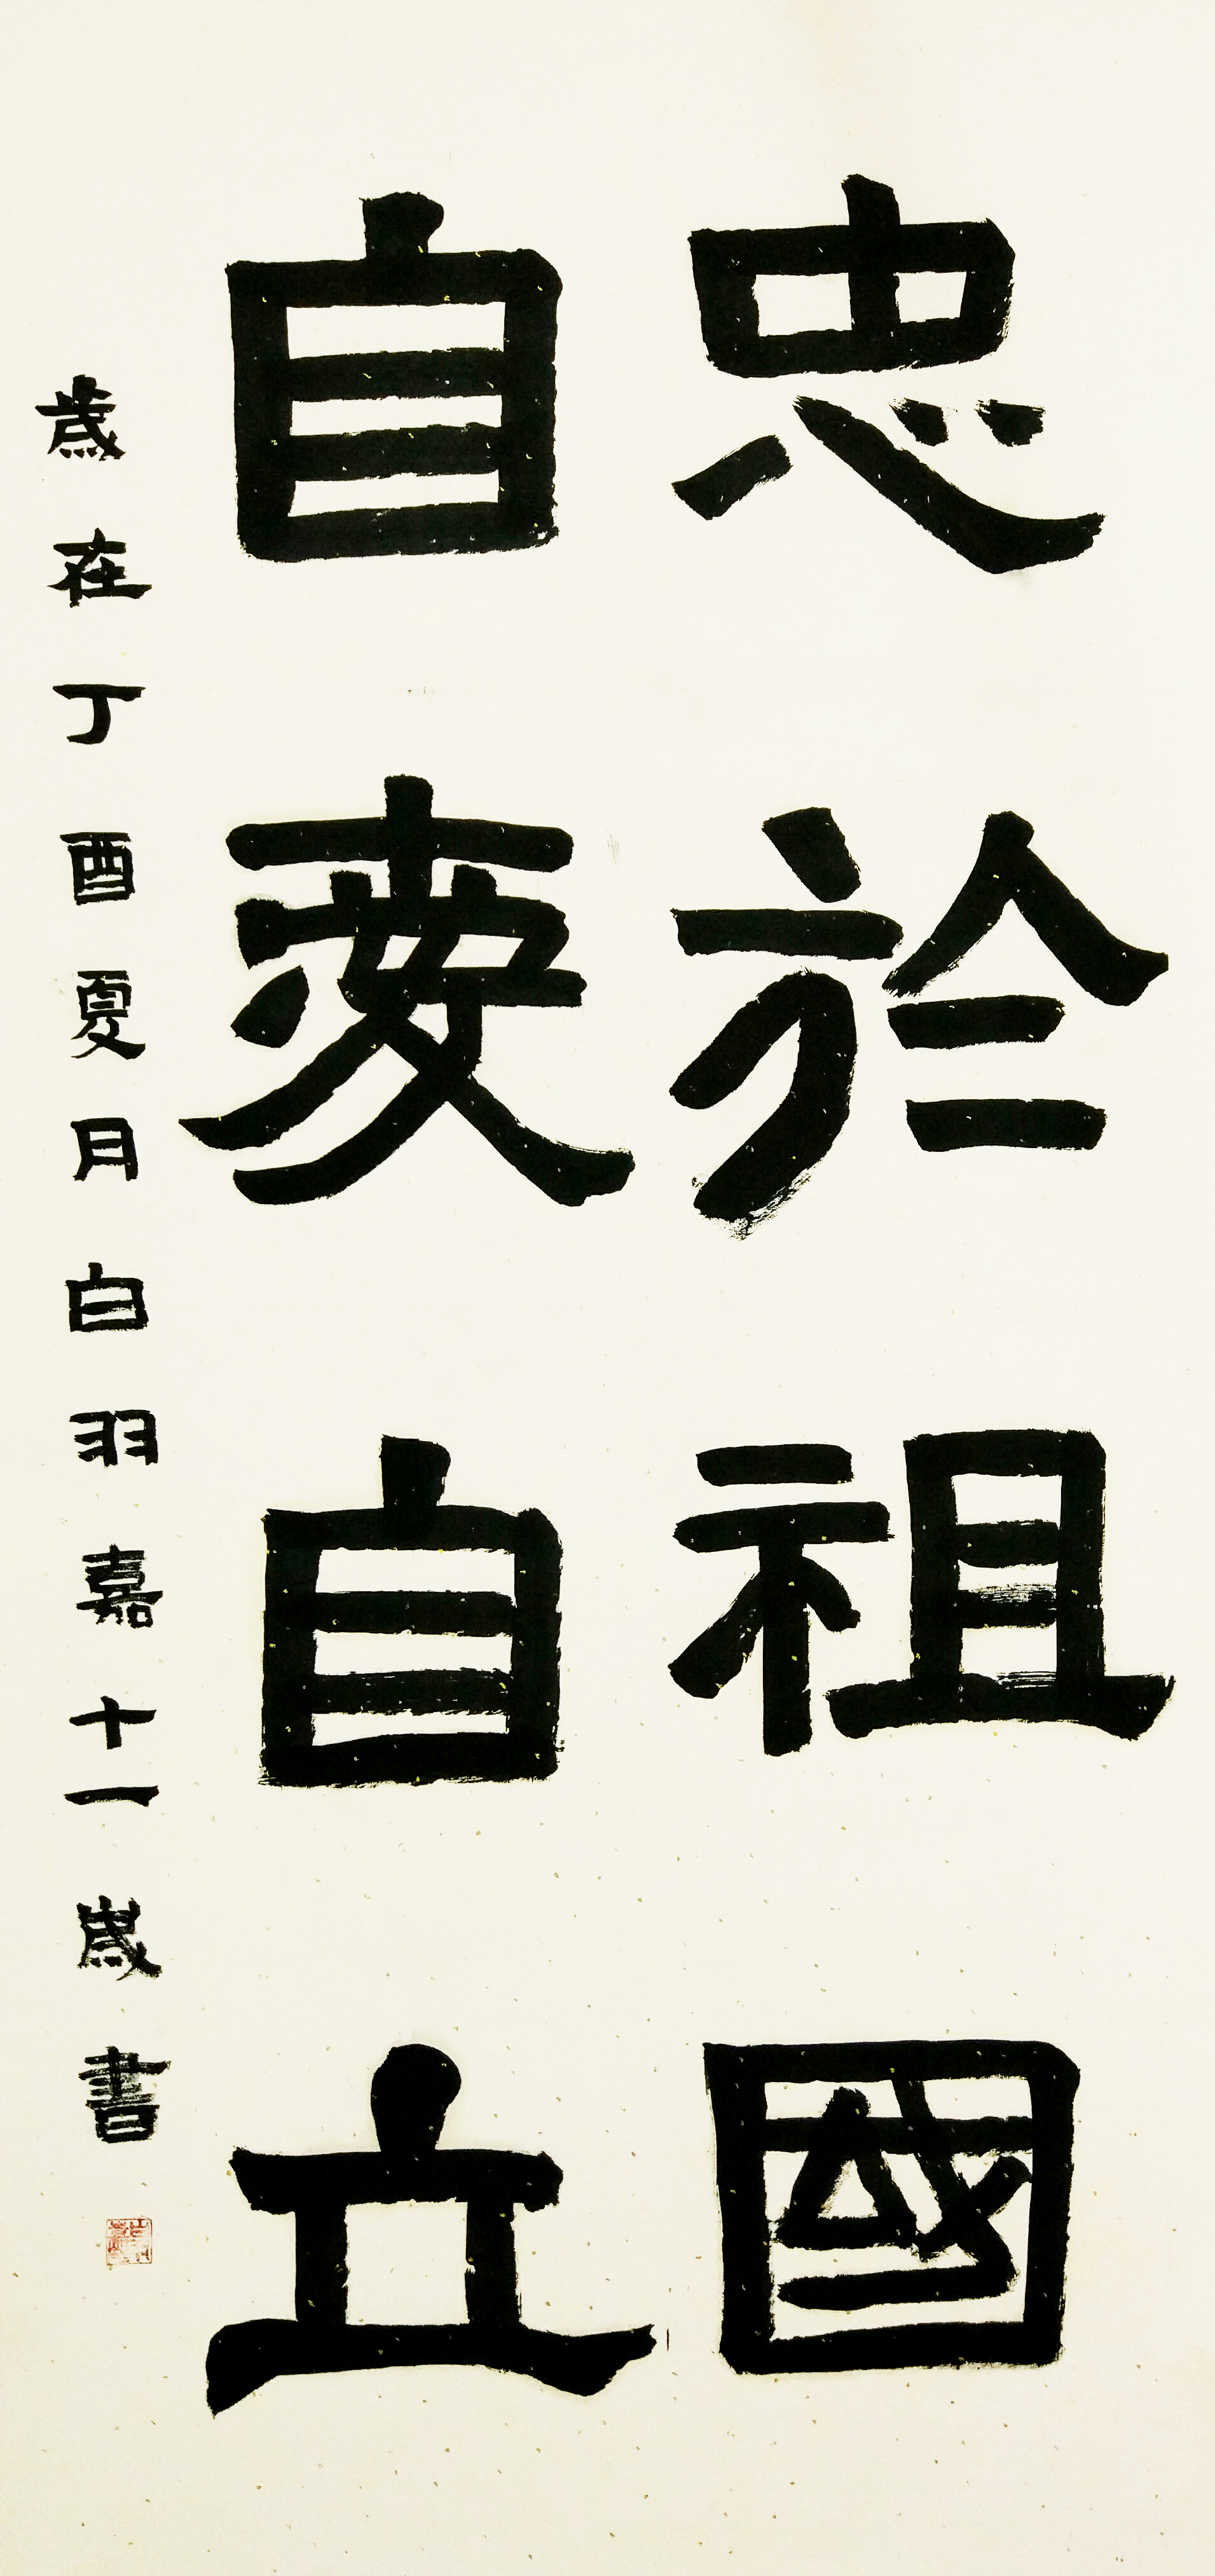 忠於祖國
自愛自立
歲在丁酉夏月白羽嘉十一歲書